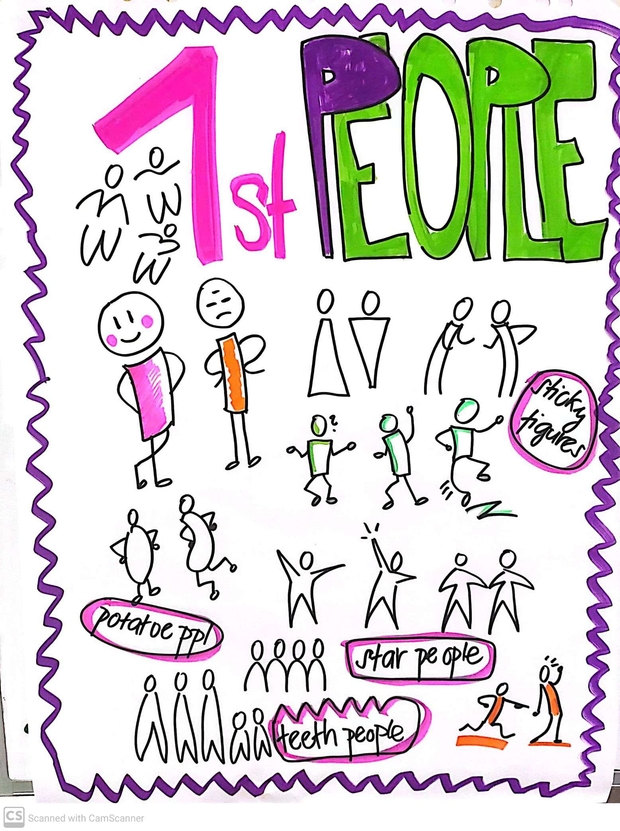 1st PEOPLE
sticky
figures
potatoe ppl
star people
teeth people
?
CS Scanned with CamScanner